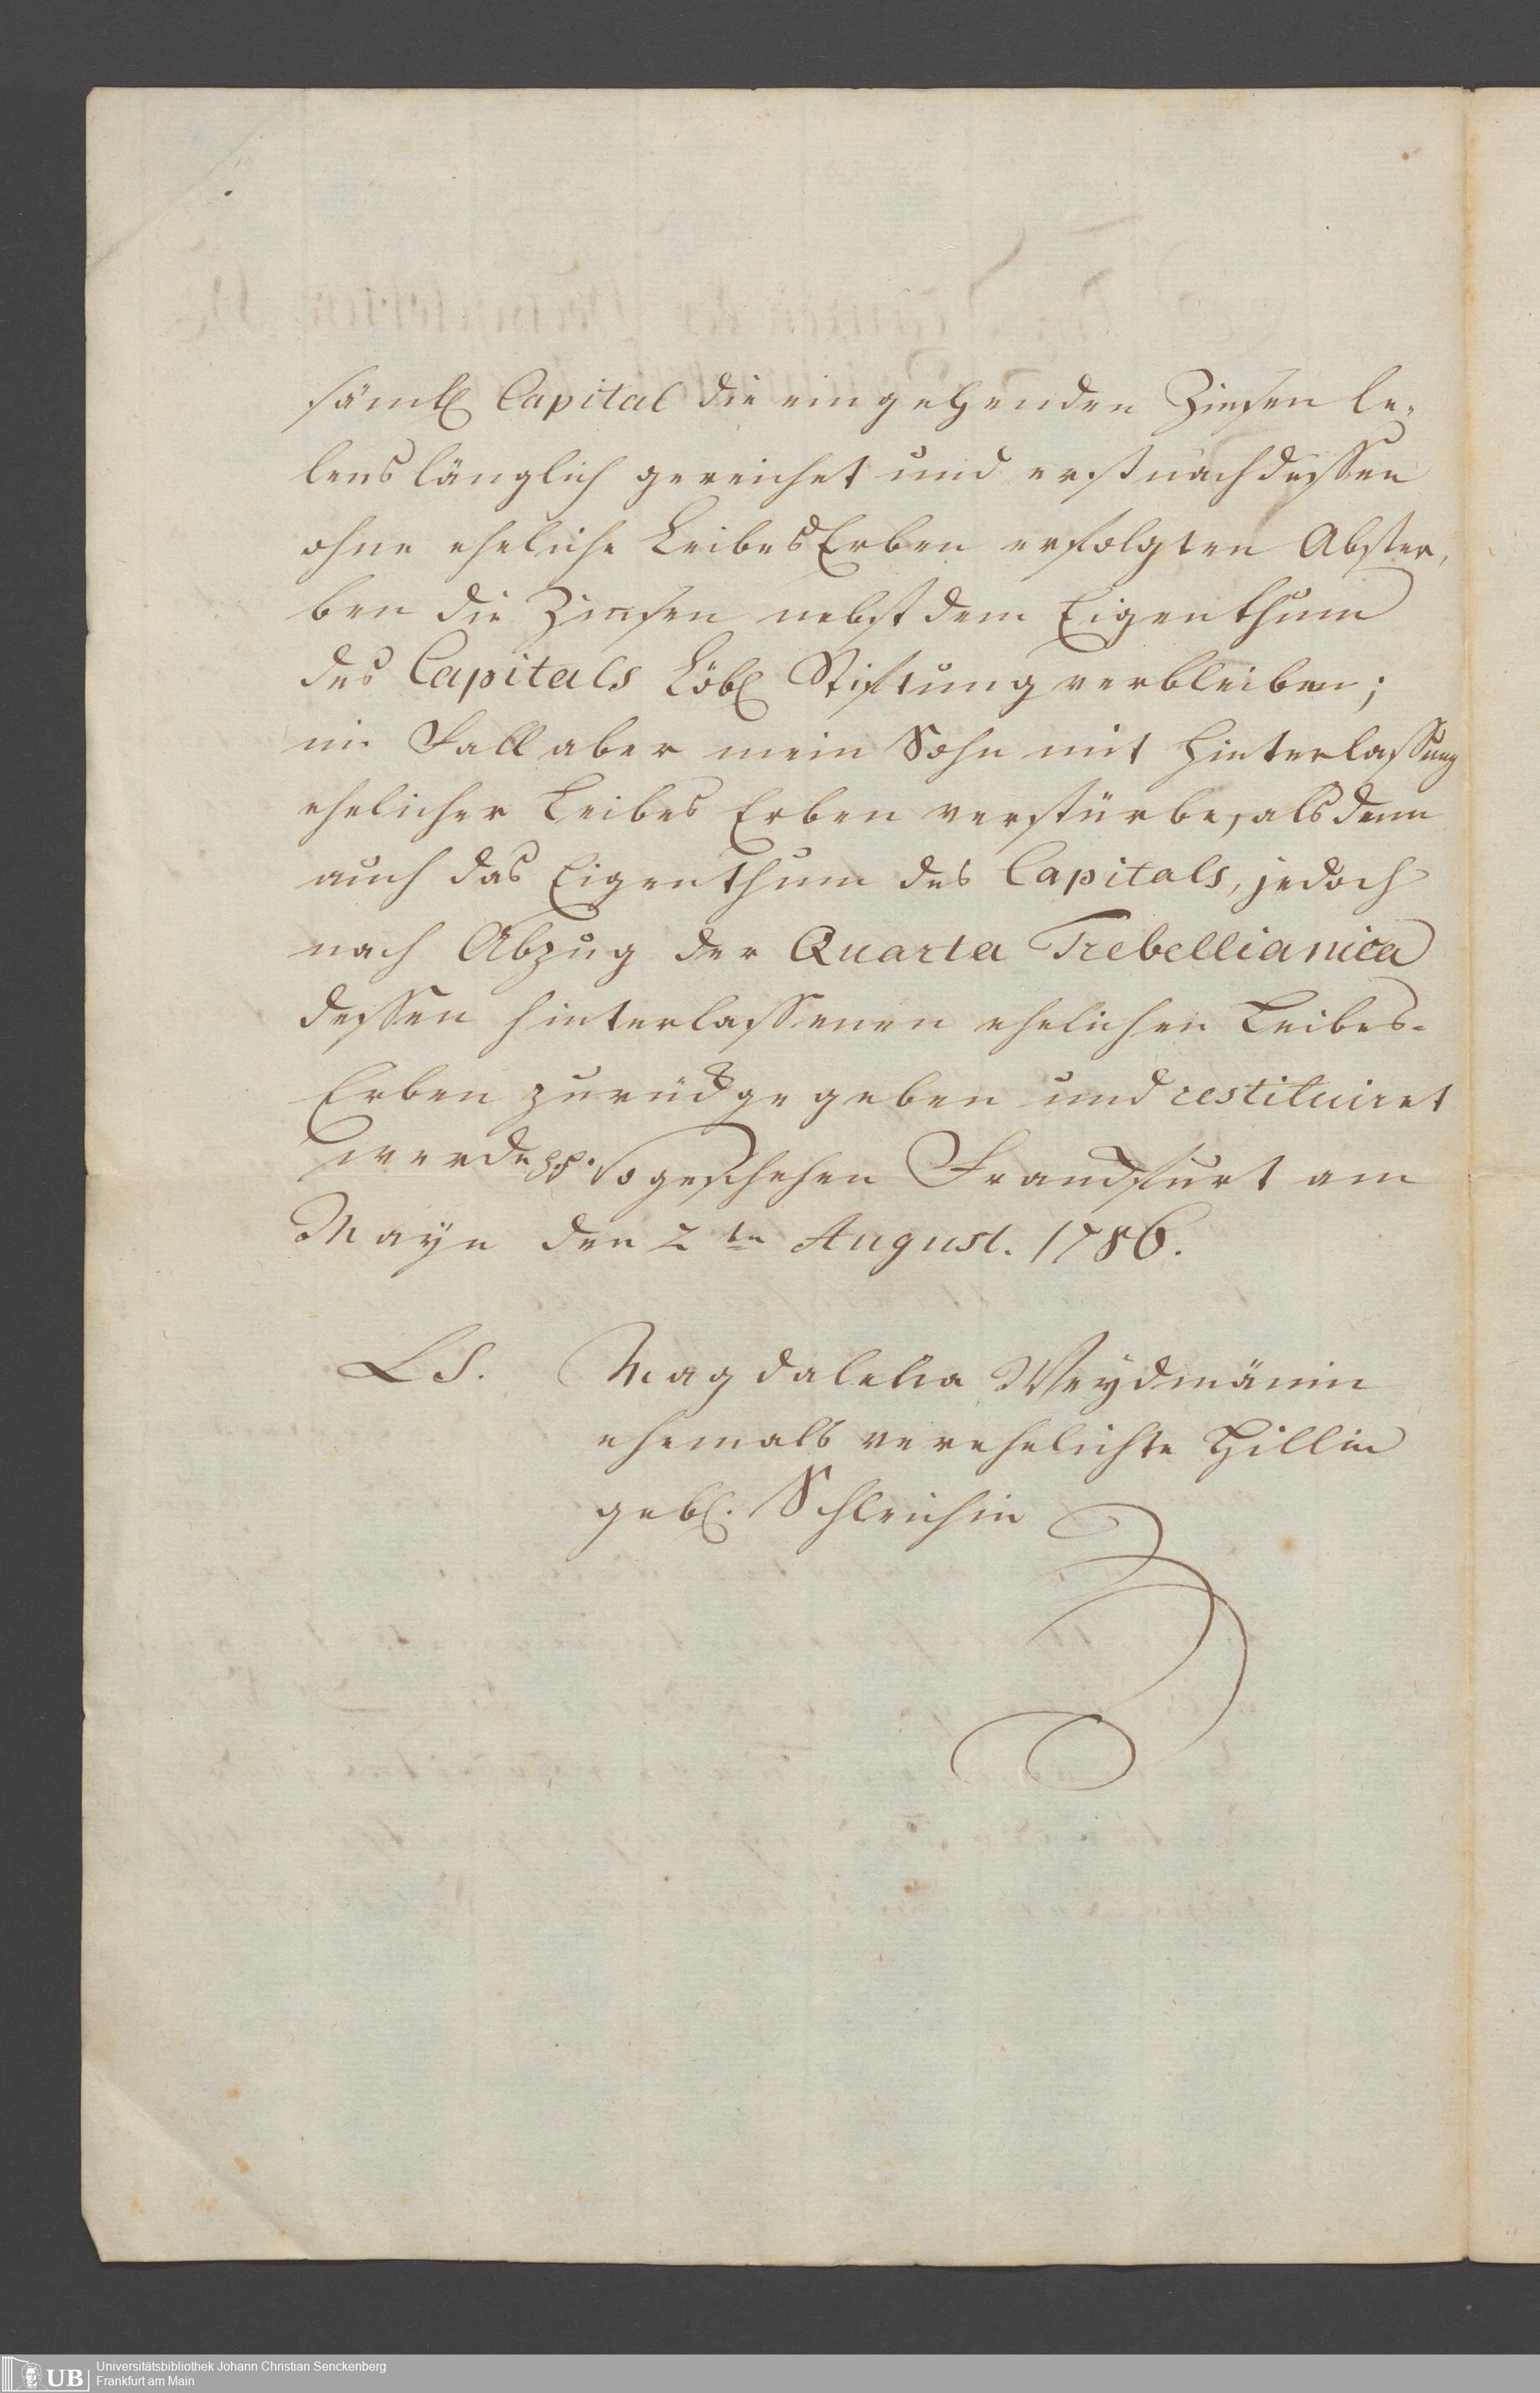 sämtl Capital die eingehenden Zinsen le-
benslänglich gereichet und erst nach dessen
ohne eheliche Leibes Erben erfolgten Abster,
ben die Zinsen nebst dem Eigenthum
des Capitals Löbl Stiftung verbleiben;
im Fall aber mein Sohn mit Hinterlassung
ehelicher Leibes Erben verstürbe, als denn
auch das Eigenthum des Capitals, jedoch
nach Abzug der Quarta Trebellianica
dessen hinterlassenen ehelichen Leibes-
Erben zurückgegeben und restituiret
werde. So geschehen Franckfurt am
Mayn den 2ten August. 1786.
LS. Magdalena Weydmänin
ehemals verehelichte Hillin
gebl. Schleichin
UB Universitätsbibliothek Johann Christian Senckenberg
Frankfurt am Main